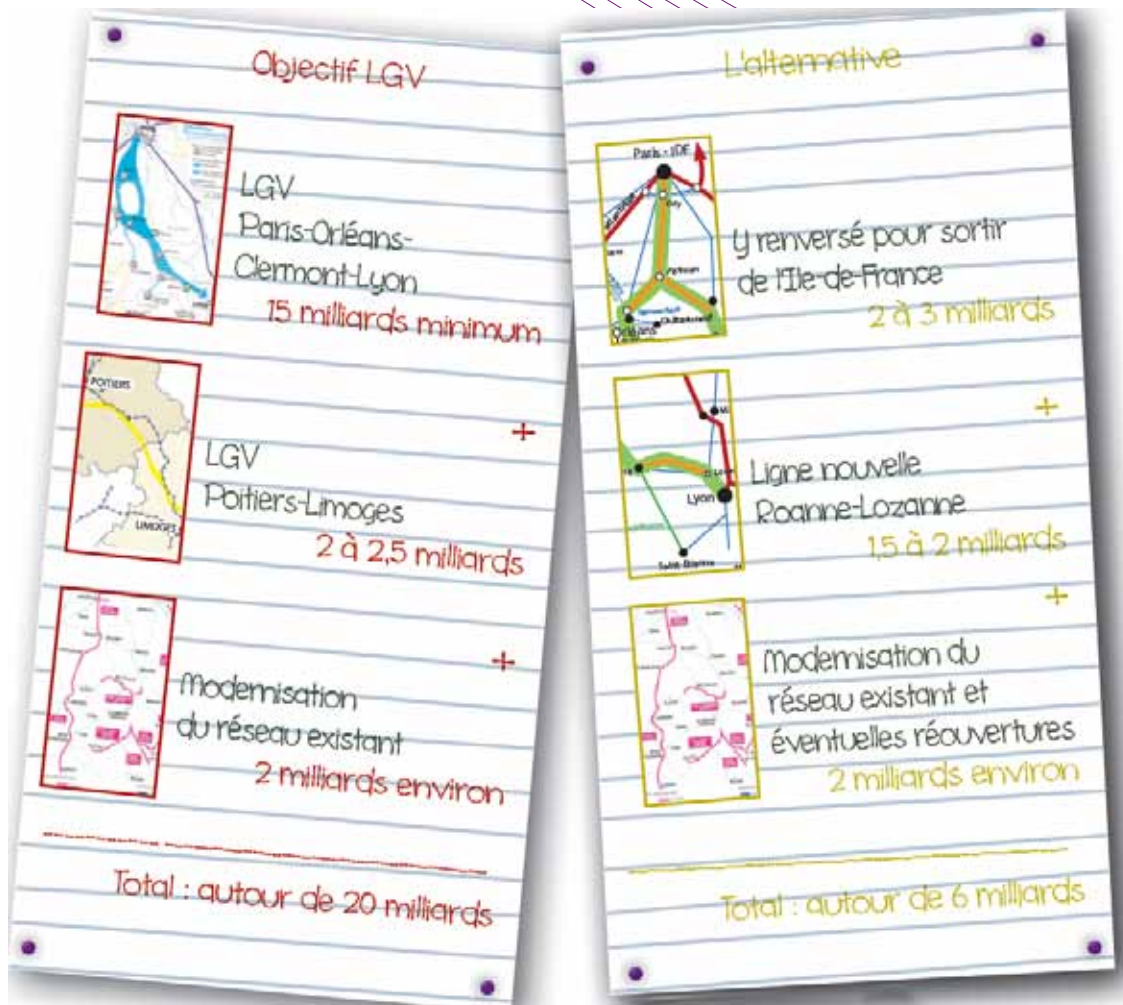 Objectif LGV
LGV
Paris-Orléans-
Clermont-Lyon
15 milliards minimum
POITIERS
LIMOGES
+
LGV
Poitiers-Limoges
2 à 2,5 milliards
+
Modernisation
du réseau existant
2 milliards environ
Total : autour de 20 milliards
L'alternative
Paris - IDF
Orléans
Y renversé pour sortir
de l'Ile-de-France
2 à 3 milliards
+
Lyon
Saint-Etienne
Ligne nouvelle
Roanne-Lozanne
1,5 à 2 milliards
+
Modernisation du
réseau existant et
éventuelles réouvertures
2 milliards environ
Total : autour de 6 milliards